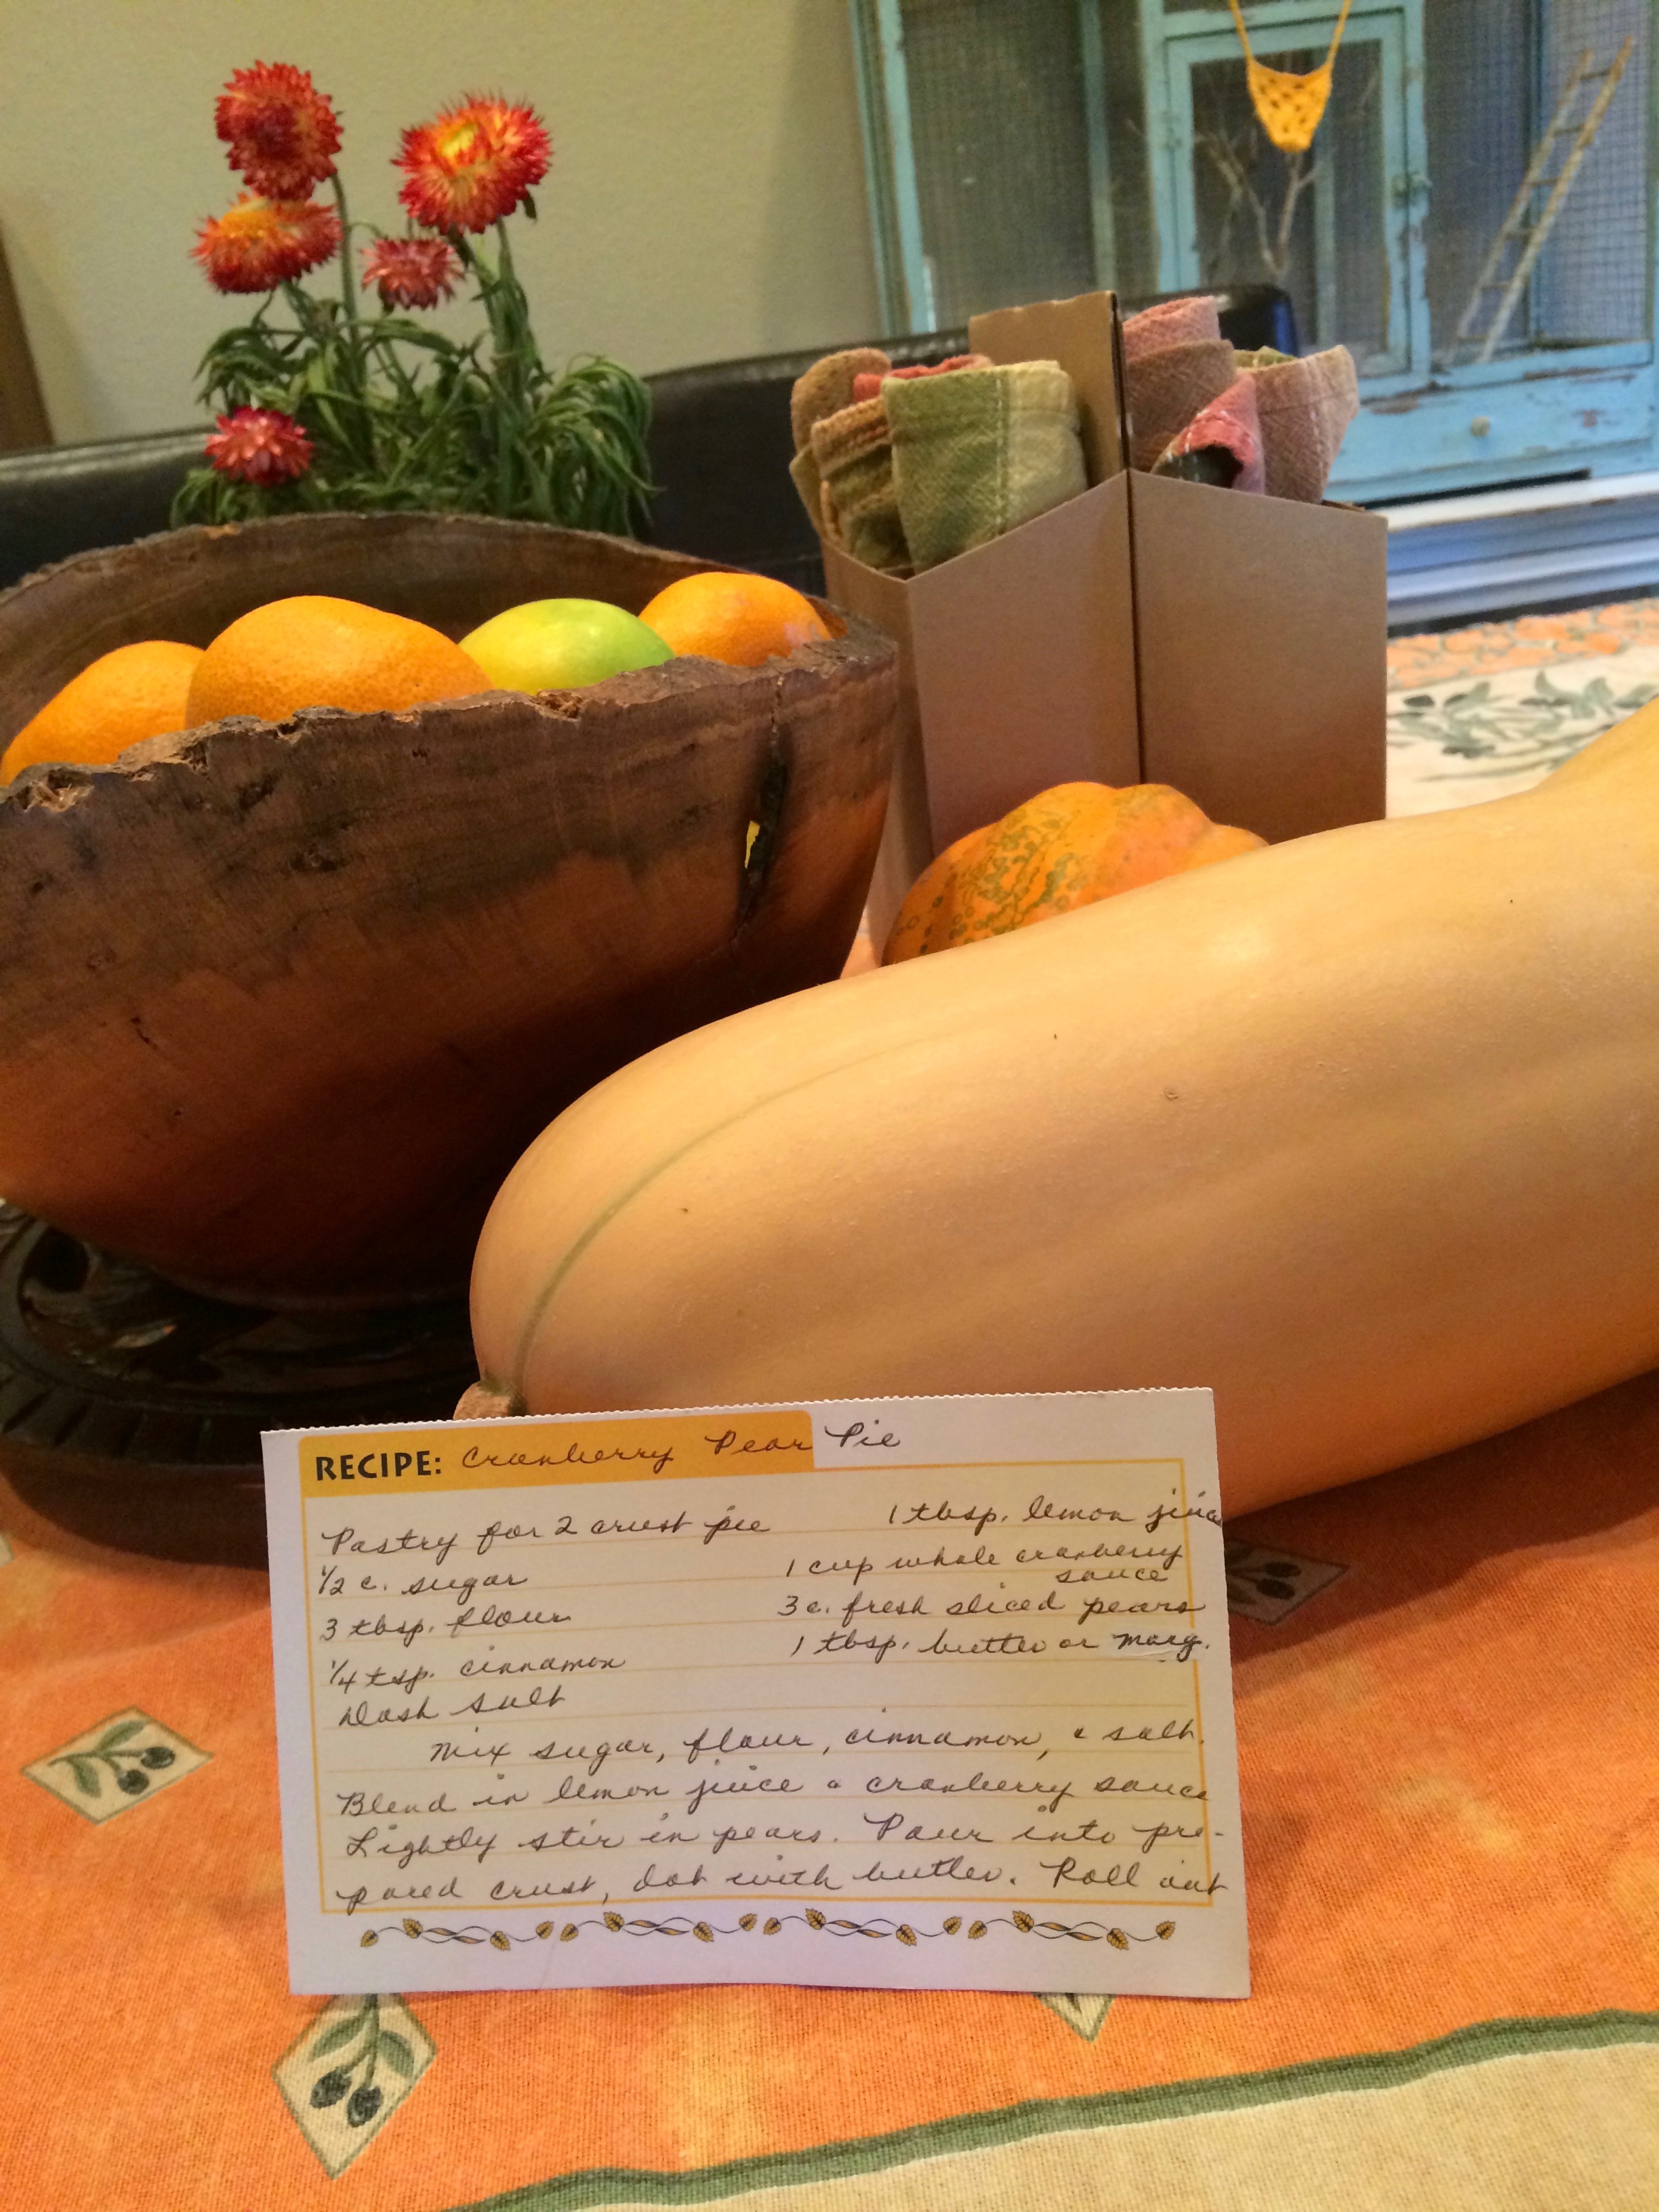 RECIPE: Cranberry Pear Pie
Pastry for 2 crust pie
1/2 c. sugar
3 tbsp. flour
1/4 tsp. cinnamon
Dash salt
1 tbsp. lemon juice
1 cup whole cranberry
sauce
3 c. fresh sliced pears
1 tbsp. butter or marg.
Mix sugar, flour, cinnamon, & salt.
Blend in lemon juice & cranberry sauce
Lightly stir in pears. Pour into pre-
pared crust, dot with butter. Roll out